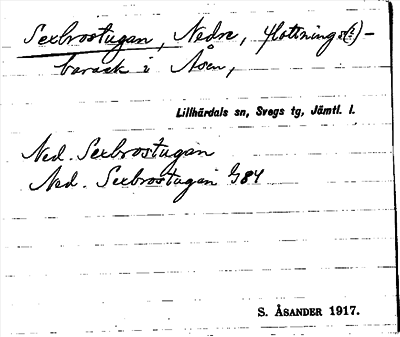 Sexbrostugan, Nedre, flottnings(?)-
barack i Åsen,
Lillhärdals sn, Svegs tg, Jämtl. l.
Ned. Sexbrostugan
Ned. Sexbrostugan G84
S. ÅSANDER 1917.